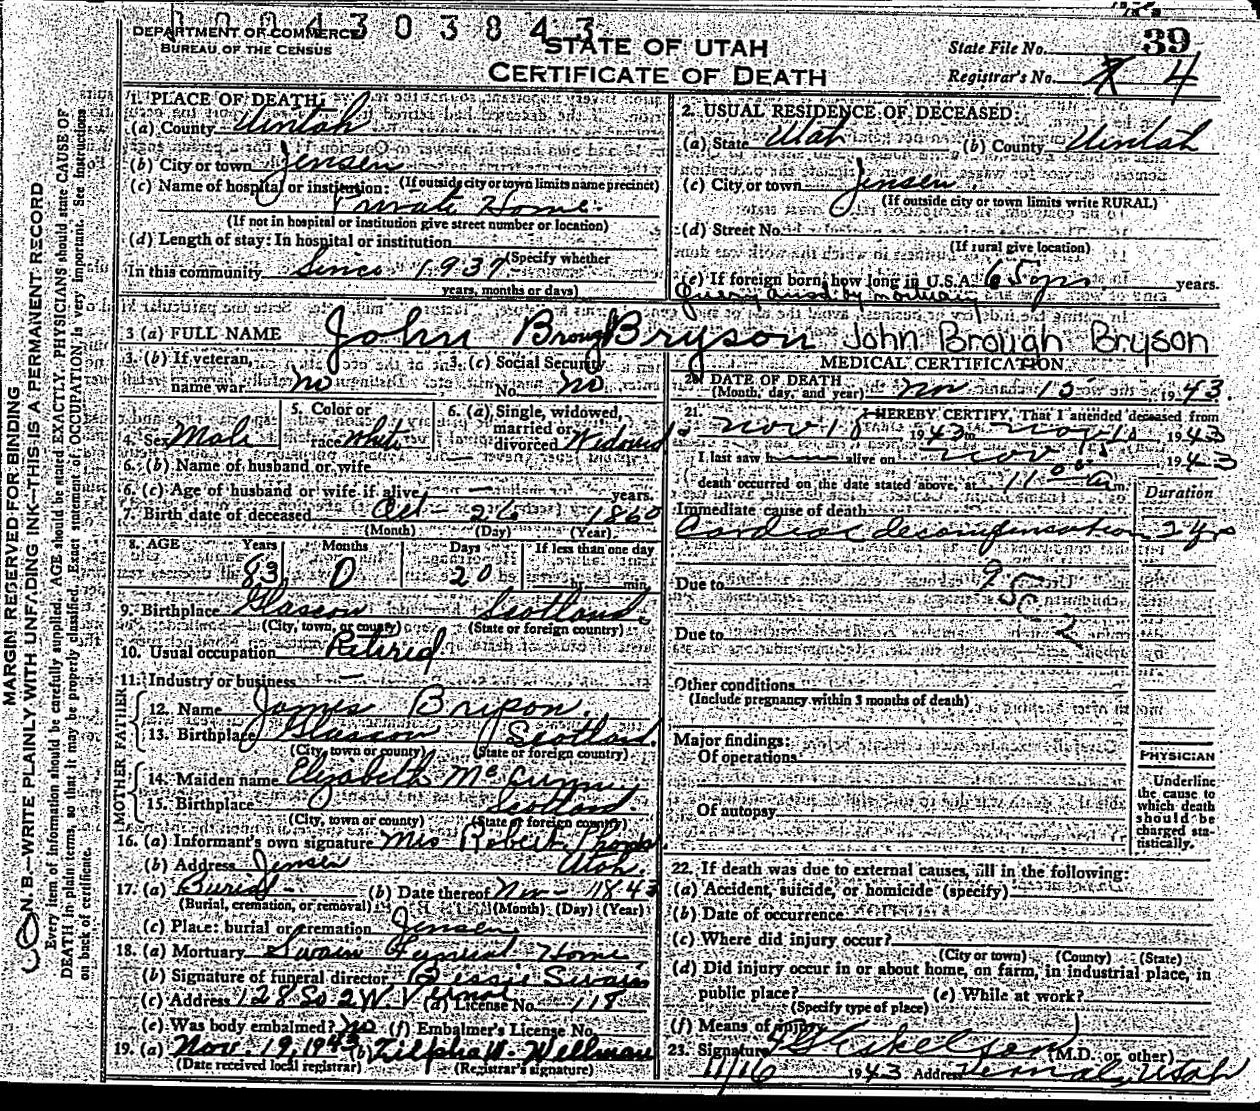 1004303843
DEPARTMENT OF COMMERCE
BUREAU OF THE CENSUS
STATE OF UTAH
CERTIFICATE OF DEATH
State File No. 39
Registrar's No. 4
MARGIN RESERVED FOR BINDING
N. B.—WRITE PLAINLY WITH UNFADING INK—THIS IS A PERMANENT RECORD
Every item of information should be carefully supplied. AGE should be stated EXACTLY. PHYSICIAN should state CAUSE OF
DEATH in plain terms, so that it may be properly classified. Exact statement of OCCUPATION is very important. See instructions
on back of certificate.
1. PLACE OF DEATH:
(a) County Uintah
(b) City or town Jensen
(c) Name of hospital or institution: (If outside city or town limits name precinct)
Private Home
(If not in hospital or institution give street number or location)
(d) Length of stay: In hospital or institution
(Specify whether
In this community Since 1937
years, months or days)
2. USUAL RESIDENCE OF DECEASED:
(a) State Utah (b) County Uintah
(c) City or town Jensen
(If outside city or town limits write RURAL)
(d) Street No.
(If rural give location)
(e) If foreign born, how long in U.S.A. 65 yrs years.
Query ansd. by mortuary
3 (a) FULL NAME John Brough Bryson John Brough Bryson
3. (b) If veteran, name war no 3. (c) Social Security No. no
4. Sex Male 5. Color or race White 6. (a) Single, widowed, married or divorced Widowed
6. (b) Name of husband or wife
6. (c) Age of husband or wife if alive years.
7. Birth date of deceased Oct - 26 1860
(Month) (Day) (Year)
8. AGE Years 83 Months 0 Days 20 If less than one day hr. min.
9. Birthplace Glascow Scotland
(City, town, or county) (State or foreign country)
10. Usual occupation Retired
11. Industry or business
FATHER
12. Name James Bryson
13. Birthplace Glascow Scotland
(City, town or county) (State or foreign country)
MOTHER
14. Maiden name Elizabeth
15. Birthplace Scotland
(City, town or county) (State or foreign country)
16. (a) Informant's own signature Mrs Robert
(b) Address Jensen Utah
17. (a) Burial (b) Date thereof Nov - 18 43
(Burial, cremation, or removal) (Month) (Day) (Year)
(c) Place: burial or cremation Jensen
18. (a) Mortuary Swain Funeral Home
(b) Signature of funeral director Bessie Swain
(c) Address 128 So 2 W Vernal (d) License No. 118
(e) Was body embalmed? no (f) Embalmer's License No.
19. (a) Nov. 19, 1943 (b) Zilpha W. Wellman
(Date received local registrar) (Registrar's signature)
MEDICAL CERTIFICATION
20. DATE OF DEATH
(Month, day, and year) Nov 15 1943.
21. I HEREBY CERTIFY, That I attended deceased from
Nov 1943 to Nov 1943
I last saw h alive on Nov 1943
death occurred on the date stated above, at 11 00 a m.
Duration
Immediate cause of death
Cardiac decompensation 2 yrs
Due to 95c
Due to 2
Other conditions
(Include pregnancy within 3 months of death)
Major findings:
Of operations
Of autopsy
PHYSICIAN
Underline
the cause to
which death
should be
charged sta-
tistically.
22. If death was due to external causes, fill in the following:
(a) Accident, suicide, or homicide (specify)
(b) Date of occurrence
(c) Where did injury occur?
(City or town) (County) (State)
(d) Did injury occur in or about home, on farm, in industrial place, in
public place? (e) While at work?
(Specify type of place)
(f) Means of injury
23. Signature (M.D. or other)
11/16 1943 Address Vernal, Utah